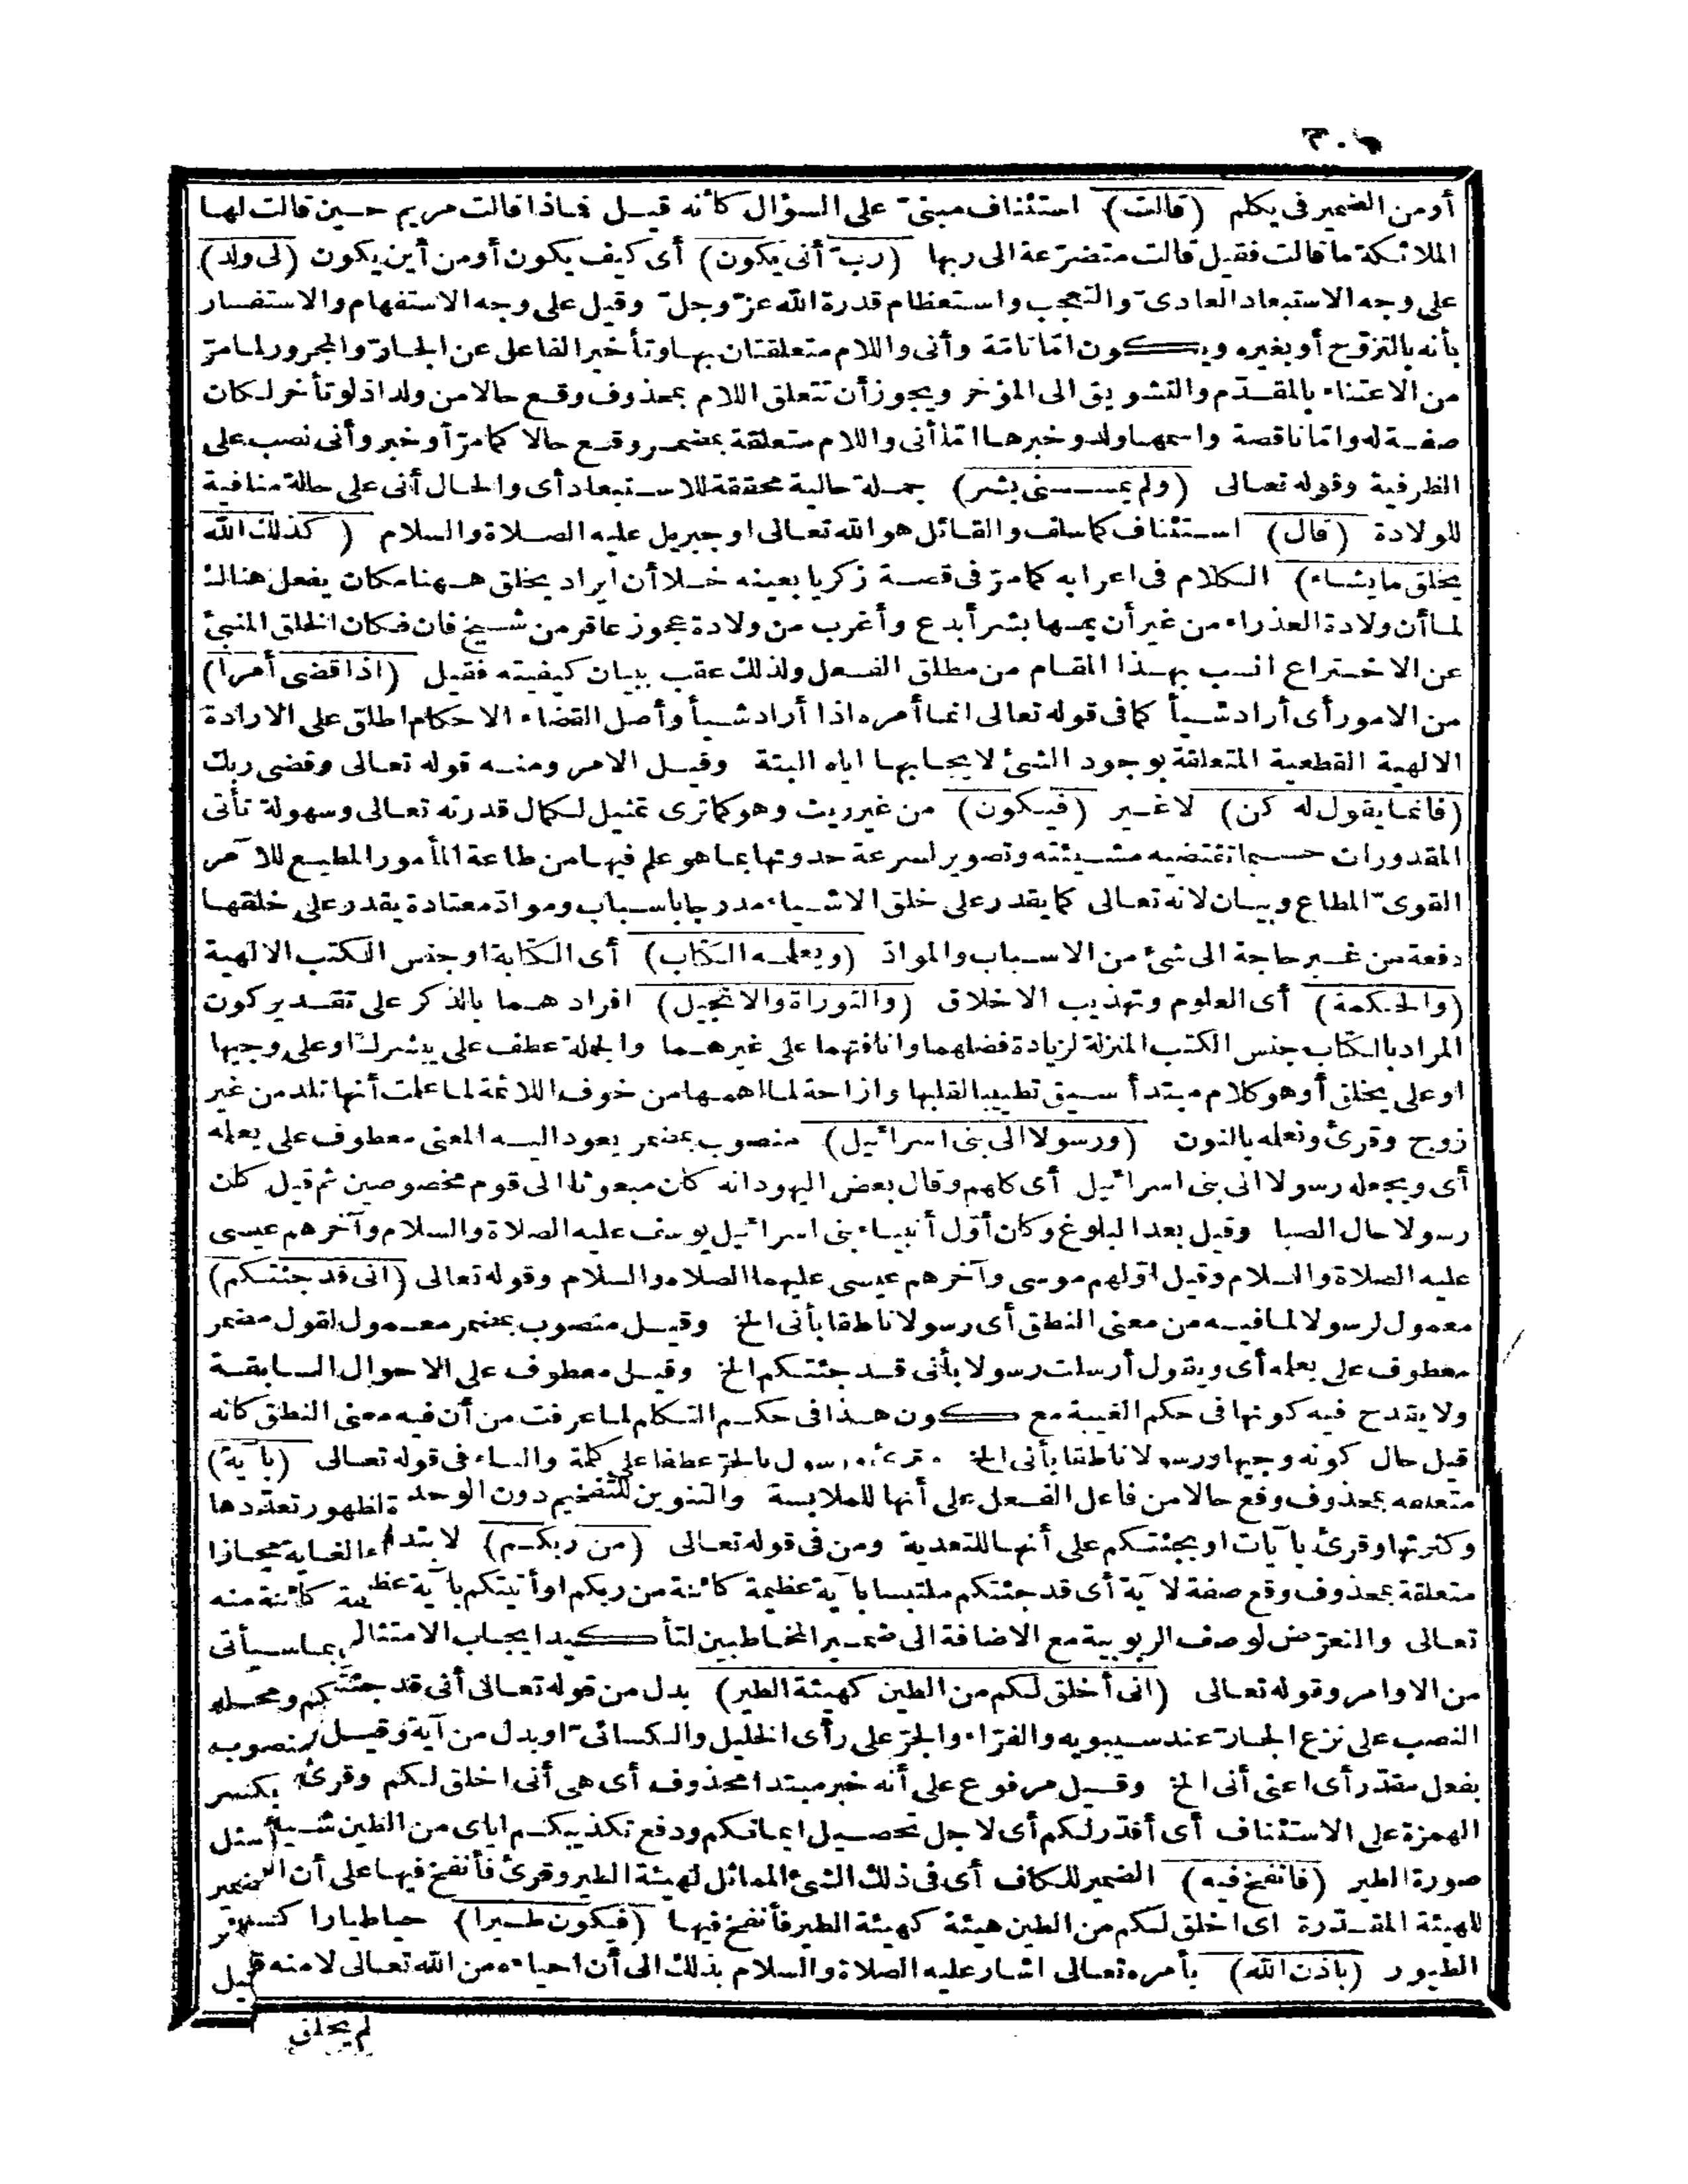 أومن الضمير فى يكلم (قالت) استئناف مبنىّ على السؤال كأنه قيل فماذا قالت مريم حين قالت لها
الملائكة ما قالت فقيل قالت متضرّعة الى ربها (ربّ أنى يكون) أى كيف يكون أومن أين يكون (لى ولد)
على وجه الاستبعاد العادىّ والتعجب واستعظام قدرة الله عزّ وجلّ وقيل على وجه الاستفهام والاستفسار
بأنه بالتزوّج أو بغيره ويكون امّا تامّة وأنى واللام متعلقتان بها وتأخير الفاعل عن الجارّ والمجرور لما مرّ
من الاعتناء بالمقدّم والتشويق الى المؤخر ويجوز أن تتعلق اللام بمحذوف وقع حالا من ولد اذ لو تأخر لكان
صفة له وامّا ناقصة واسمها ولد وخبرها امّا أنى واللام متعلقة بمضمر وقع حالا كما مرّ أو خبر وأنى نصب على
الظرفية وقوله تعالى (ولم يمسسنى بشر) جملة حالية محققة للاستبعاد أى والحال أنى على حالة منافية
للولادة (قال) استئناف كما سلف والقائل هو الله تعالى او جبريل عليه الصلاة والسلام (كذلك الله
يخلق ما يشاء) الكلام فى اعرابه كما مرّ فى قصة زكريا بعينه خلا أن ايراد يخلق ههنا مكان يفعل هنالك
لما أن ولادة العذراء من غير أن يمسها بشر أبدع وأغرب من ولادة عجوز عاقر من شيخ فان فكان الخلق المنبئ
عن الاختراع انسب بهذا المقام من مطلق الفعل ولذلك عقب ببيان كيفيته فقيل (اذا قضى أمرا)
من الامور أى أراد شيأ كما فى قوله تعالى انما أمره اذا أراد شيأ وأصل القضاء الاحكام اطلق على الارادة
الالهية القطعية المتعلقة بوجود الشئ لايجابها اياه البتة وقيل الامر ومنه قوله تعالى وقضى ربك
(فانما يقول له كن) لا غير (فيكون) من غير ريث وهو كما ترى تمثيل لكمال قدرته تعالى وسهولة تأتى
المقدورات حسبما تقتضيه مشيئته وتصوير لسرعة حدوثها بما هو علم فيها من طاعة المأمور المطيع للآمر
القوىّ المطاع وبيان لانه تعالى كما يقدر على خلق الاشياء مدرجا باسباب وموادّ معتادة يقدر على خلقها
دفعة من غير حاجة الى شئ من الاسباب والموادّ (ويعلمه الكتاب) أى الكتابة او جنس الكتب الالهية
(والحكمة) أى العلوم وتهذيب الاخلاق (والتوراة والانجيل) افرادهما بالذكر على تقدير كون
المراد بالكتاب جنس الكتب المنزلة لزيادة فضلهما وانافتهما على غيرهما والجملة عطف على يبشرك او على وجيها
او على يخلق أو هو كلام مبتدأ سيق تطييبا لقلبها وازاحة لما اهمها من خوف اللائمة لما علمت أنها تلد من غير
زوج وقرئ ونعلمه بالنون (ورسولا الى بنى اسرائيل) منصوب بمضمر يعود اليه المعنى معطوف على يعلمه
أى ويجعله رسولا الى بنى اسرائيل أى كلهم وقال بعض اليهود انه كان مبعوثا الى قوم مخصوصين ثم قيل كان
رسولا حال الصبا وقيل بعد البلوغ وكان أوّل أنبياء بنى اسرائيل يوسف عليه الصلاة والسلام وآخرهم عيسى
عليه الصلاة والسلام وقيل اوّلهم موسى وآخرهم عيسى عليهما الصلاة والسلام وقوله تعالى (انى قد جئتكم)
معمول لرسولا لما فيه من معنى النطق أى رسولا ناطقا بأنى الخ وقيل منصوب بمضمر معمول لقول مضمر
معطوف على يعلمه أى ويقول أرسلت رسولا بأنى قد جئتكم الخ وقيل معطوف على الاحوال السابقة
ولا يقدح فيه كونها فى حكم الغيبة مع كون هذا فى حكم التكلم لما عرفت من أن فيه معنى النطق كانه
قيل حال كونه وجيها ورسولا ناطقا بأنى الخ وقرئ ورسول بالجرّ عطفا على كلمة والباء فى قوله تعالى (بآية)
متعلقة بمحذوف وقع حالا من فاعل الفعل على أنها للملابسة والتنوين للتفخيم دون الوحدة لظهور تعدّدها
وكثرتها وقرئ بآيات او بجئتكم على أنها للتعدية ومن فى قوله تعالى (من ربكم) لابتداء الغاية مجازا
متعلقة بمحذوف وقع صفة لآية أى قد جئتكم ملتبسا بآية عظيمة كائنة من ربكم او أتيتكم بآية عظيمة كائنة منه
تعالى والتعرّض لوصف الربوبية مع الاضافة الى ضمير المخاطبين لتأكيد ايجاب الامتثال بما سيأتى
من الاوامر وقوله تعالى (انى أخلق لكم من الطين كهيئة الطير) بدل من قوله تعالى أنى قد جئتكم ومحله
النصب على نزع الجارّ عند سيبويه والفرّاء والجرّ على رأى الخليل والكسائىّ او بدل من آية وقيل منصوب
بفعل مقدّر أى اعنى أنى الخ وقيل مرفوع على أنه خبر مبتدا محذوف أى هى أنى اخلق لكم وقرئ بكسر
الهمزة على الاستئناف أى أقدّر لكم أى لاجل تحصيل ايمانكم ودفع تكذيبكم اياى من الطين شيأ مثل
صورة الطير (فانفخ فيه) الضمير للكاف أى فى ذلك الشئ المماثل لهيئة الطير وقرئ فأنفخ فيها على أن الضمير
للهيئة المقدّرة اى اخلق لكم من الطين هيئة كهيئة الطير فأنفخ فيها (فيكون طيرا) حيا طيارا كسائر
الطيور (باذن الله) بأمره تعالى اشار عليه الصلاة والسلام بذلك الى أن احياءه من الله تعالى لا منه قيل
لم يخلق